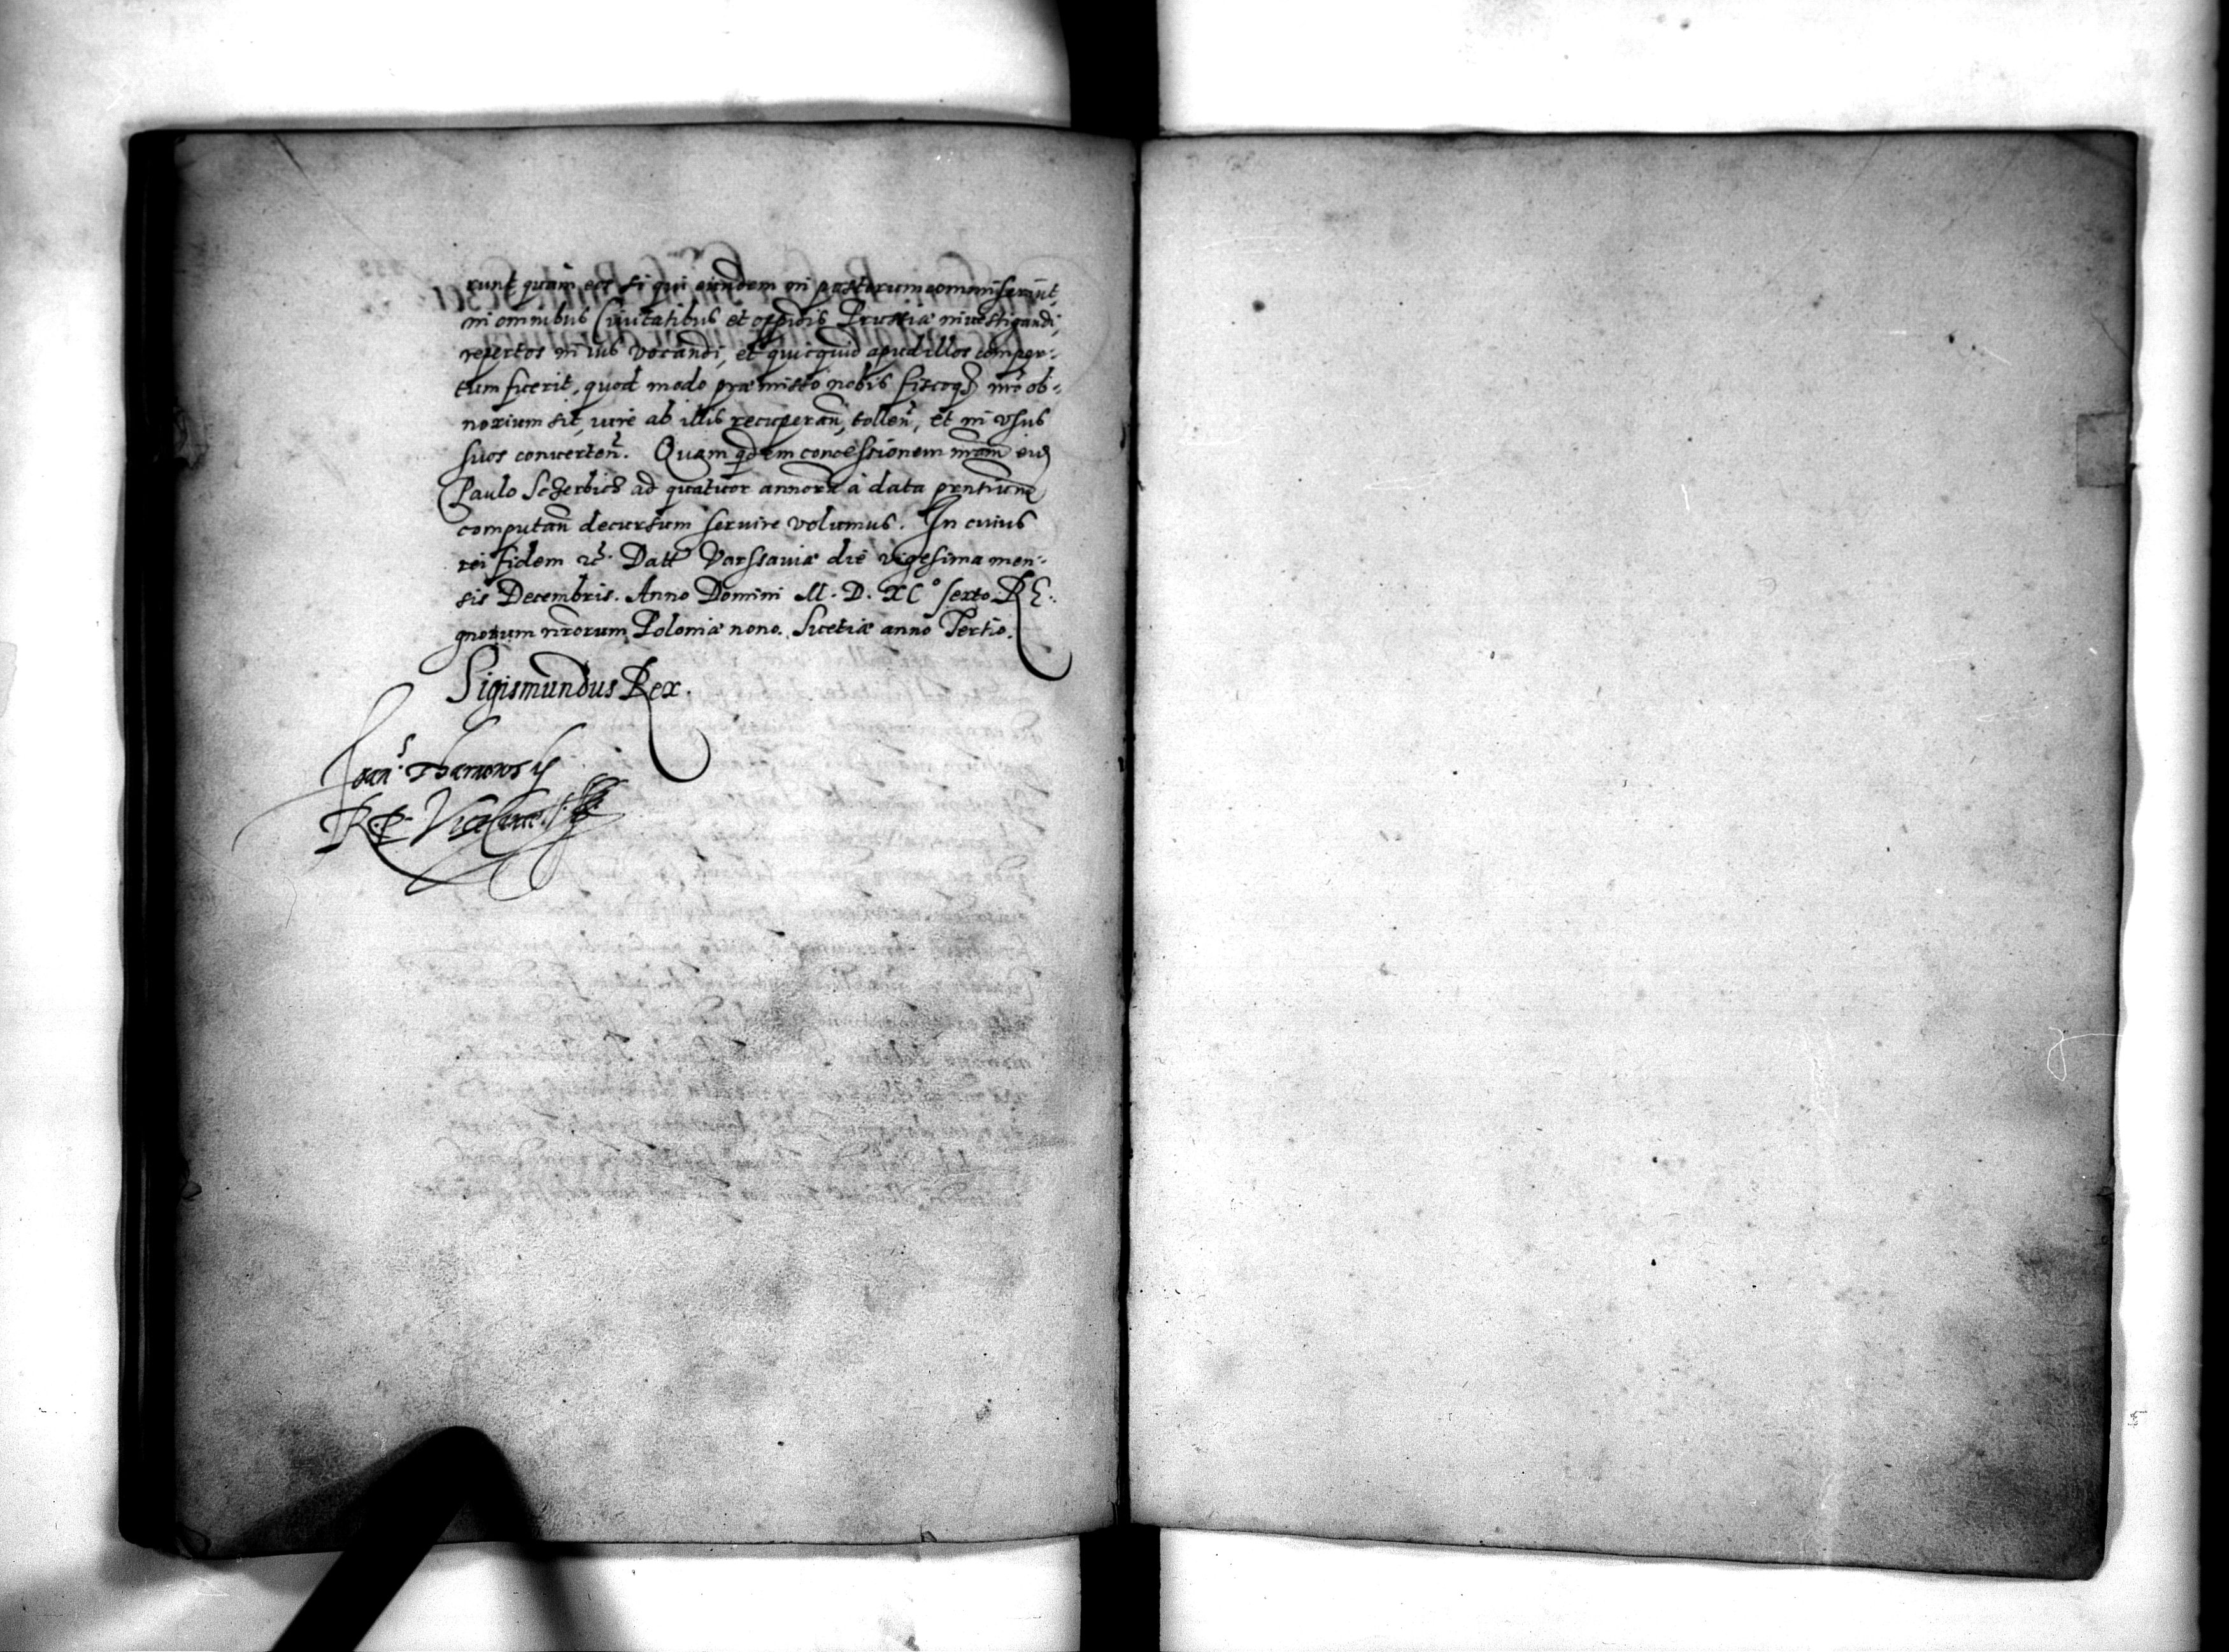 runt quàm eos si qui eundem in posterum commiserint,
in omnibus Ciuitatibus et oppidis Prussiæ inuestigandi,
repertos in ius vocandi, et quicquid apud illos comper-
tum fuerit, quod modo præmisso nobis fiscoq₃ nrô ob-
noxium sit, iure ab illis recuperan̄, tollen̄, et in vsus
suos conuerten̄. Quam qdem concessionem nram̄ eid
Paulo Sczerbicz ad quatuor annorū à data prntium
computan̄ decursum seruire volumus. In cuius
rei fidem etc. Datt Varssauiæ die vigesima men-
sis Decembris. Anno Domini M. D. XC° sexto Re-
gnorum nrorum Poloniæ nono. Suetiæ anno Tertio.
Sigismundus Rex.
Joan̄s Tharnowsky
R. P. Vicecanc.